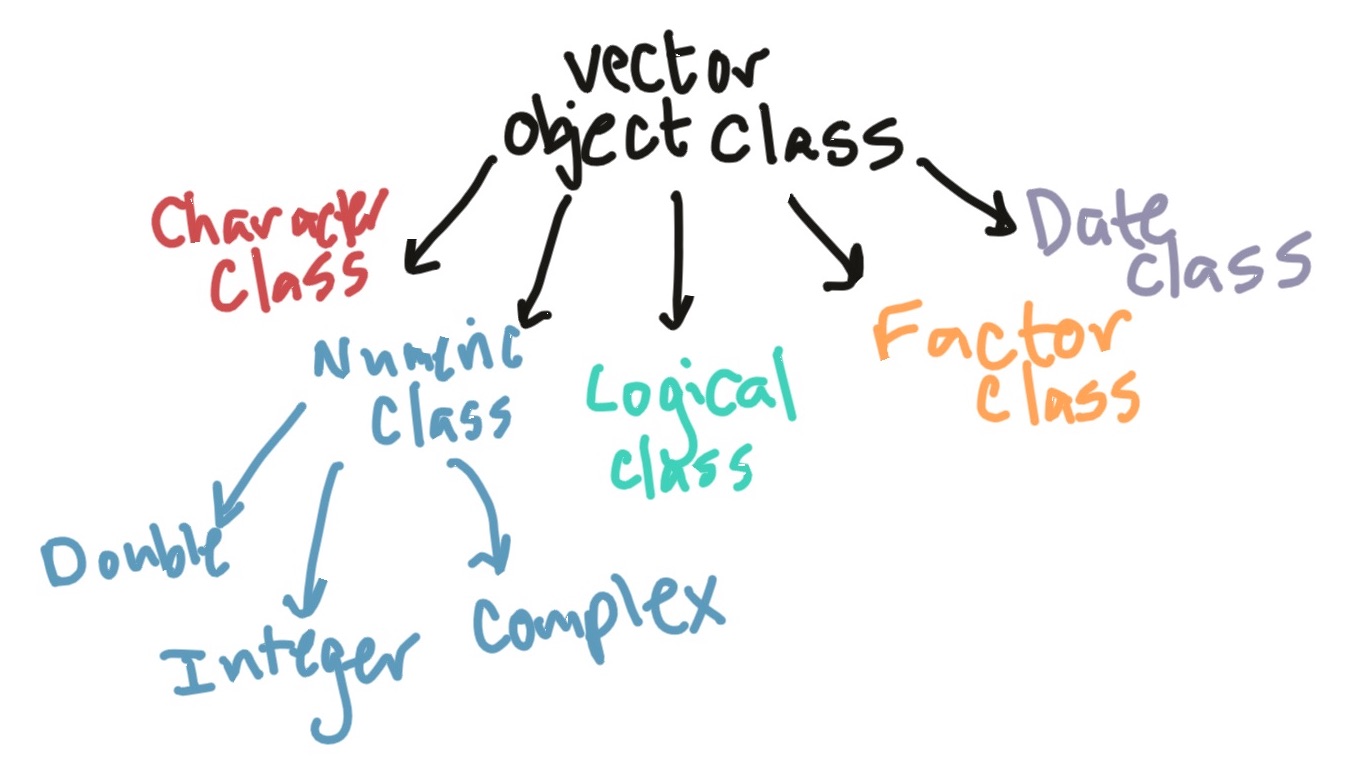 vector
object class
Character
class
Date
class
Numeric
class
Logical
class
Factor
class
Double
Integer
Complex